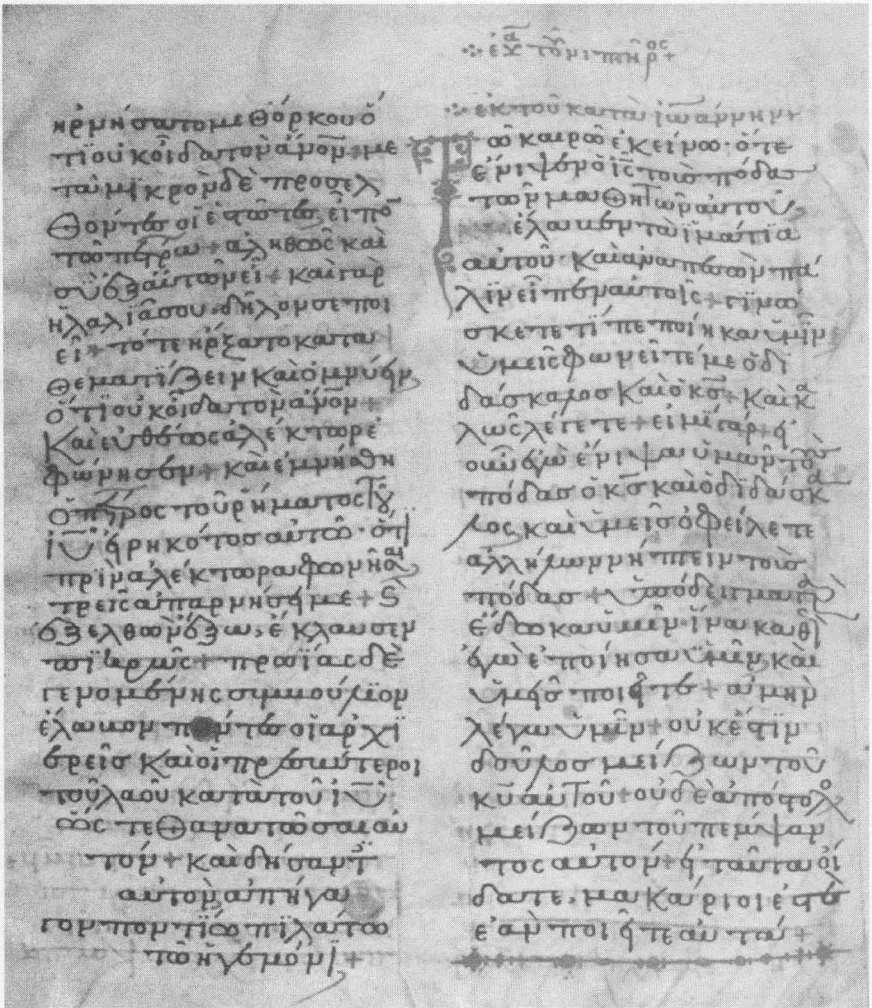 ἐκ τοῦ νιπτῆρος+
ηρνήσατο μεθ όρκου ὅ
τϊ οὐκ οἶδα τὸν ἄνον+ με
τα μϊκρὸν δὲ προσελ
θόντες οἱ ἑστῶτες εἶπο
τῶ πέτρω+ ἀληθῶς καὶ
σὺ ἐξ αὐτῶν εἶ+ καὶ γὰρ
ἡ λαλιά σου δῆλόν σε ποι
εῖ+ τότε ἤρξατο κατα
θεματΐζειν καὶ ὀμνύειν
ὅτι οὐκ οἶδα τὸν ἄνον+
Καὶ εὐθέως ἀλέκτωρ ἐ
φώνησεν+ καὶ ἐμνήσθη
ὁ πέτρος τοῦ ῥήματος τοῦ
ιυ εἰρηκότος αὐτῶ· ὅτι
πρὶν ἀλέκτωρα φωνῆσαι
τρεῖς ἀπαρνήση με+ Καὶ
ἐξελθὼν ἔξω, ἔκλαυσεν
πικρῶς+ πρωΐας δὲ
γενομένης συμβούλϊον
ἔλαβον πάντες οἱ ἀρχϊ
ερεῖς καὶ οἱ πρεσβύτεροι
τοῦ λαοῦ κατὰ τοῦ ιυ
ὥστε θανατῶσαι αὐ
τόν+ καὶ δήσαντες
αὐτὸν ἀπήγα
γον ποντΐω πϊλάτω
τῶ ἡγεμόνι+
ἐκ τοῦ κατὰ ϊωάννην
Τῶ καιρῶ ἐκείνω· ὅτε
ἔνιψεν ὁ ις τοὺς πόδας
τῶν μαθητῶν αὐτοῦ
ἔλαβεν τὰ ϊμάτϊα
αὐτοῦ· καὶ ἀναπεσὼν πά
λϊν εἶπεν αὐτοῖς+ γϊνώ
σκετε τΐ πεποίηκα ὑμῖν+
ὑμεῖς φωνεῖτέ με ὁ δϊ
δάσκαλος καὶ ὁ κς+ καὶ κα
λῶς λέγετε+ εἰμὶ γάρ+ εἰ
οὖν ἐγὼ ἔνιψα ὑμῶν τοὺς
πόδας ὁ κς καὶ ὁ δϊδάσκα
λος καὶ ὑμεῖς ὀφείλετε
ἀλλήλων νίπτειν τοὺς
πόδας+ ὑπόδειγμα γὰρ
ἔδωκα ὑμῖν· ἵνα καθὼς
ἐγὼ ἐποίησα ὑμῖν καὶ
ὑμεῖς ποιῆτε+ ἀμὴν
λέγω ὑμῖν+ οὐκ ἔστϊν
δοῦλος μείζων τοῦ
κυ αὐτοῦ+ οὐδὲ ἀπόστολος
μείζων τοῦ πέμψαν
τος αὐτόν+ εἰ ταῦτα οἴ
δατε, μακάριοί ἐστε
ἐὰν ποιῆτε αὐτά+